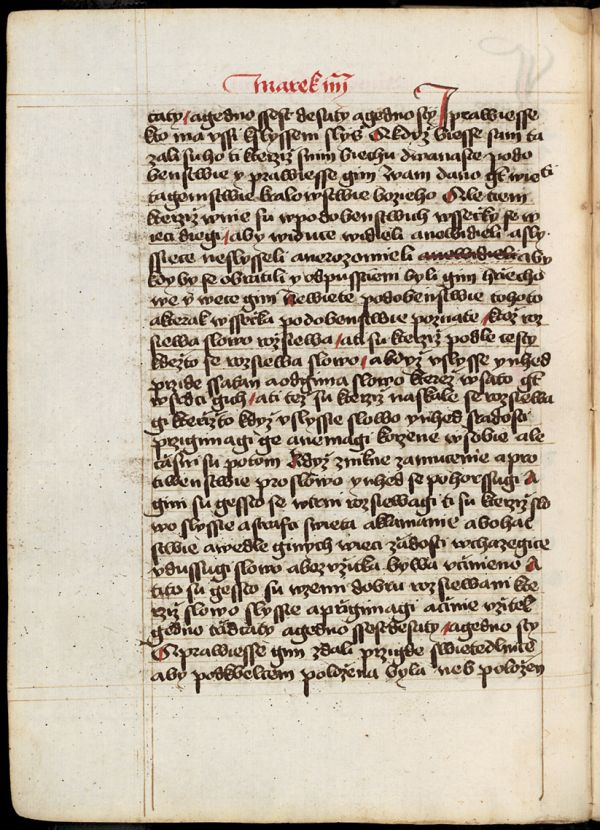 Marek iiij
tcaty a gedno ssest desaty a gedno sty I prawiesse
kto ma ussi k slyssem slys A kdyz biesse sam ta
zali su ho ti kterziz s nim biechu dwanaste podo
benstwie y prawiesse gim wam dano gt wie ti
tagemstwie kralowstwie bozieho Ale tiem
kterziz wnie su w podobenstwich wsseczky se w
ieci diegi aby widuce widieli a newidieli a sly
ssiece neslysseli a nerozomieli anewidieli aby
kdy by se obratili y odpusstieni byli gim hriecho
we y wece gim Newiete podobenstwie tohoto
a kterak wssecka podobenstwie poznate ktoz roz
siewa slowo rozsiewa a ti su kterziz podle cesty
kdezto se rozsiewa slowo a kdyz uslysse y nhed
przide ssatan a odgima slowo kterez wsato gt
w srdci gich a ti tez su kterziz na skale se rozsiewa
gi kterzizto kdyz uslyssie slowo y nhed s radosti
przigimagi ge a nemagi korzene w sobie ale
czasni su potom kdyz znikne zamucenie a pro
tiwenstwie pro slowo y nhed se pohorssugi A
gini su gessto se w trni rozsiewagi ti su kterziz slo
wo slyssie a strast swieta a klamanie a bohac
stwie a wedle ginych wieci zadosti wchazegice
udussugi slowo a bez uzitka bywa ucinieno A
tito su gessto su w zemi dobru rozsiewani kte
rziz slowo slyssie a przigimagi a cinie uzitek
gedno tridcaty a gedno ssestdesaty a gedno sty
A prawiesse gim zdali przigde swietedlnice
aby pod kbelcem polozena byla neb polozen